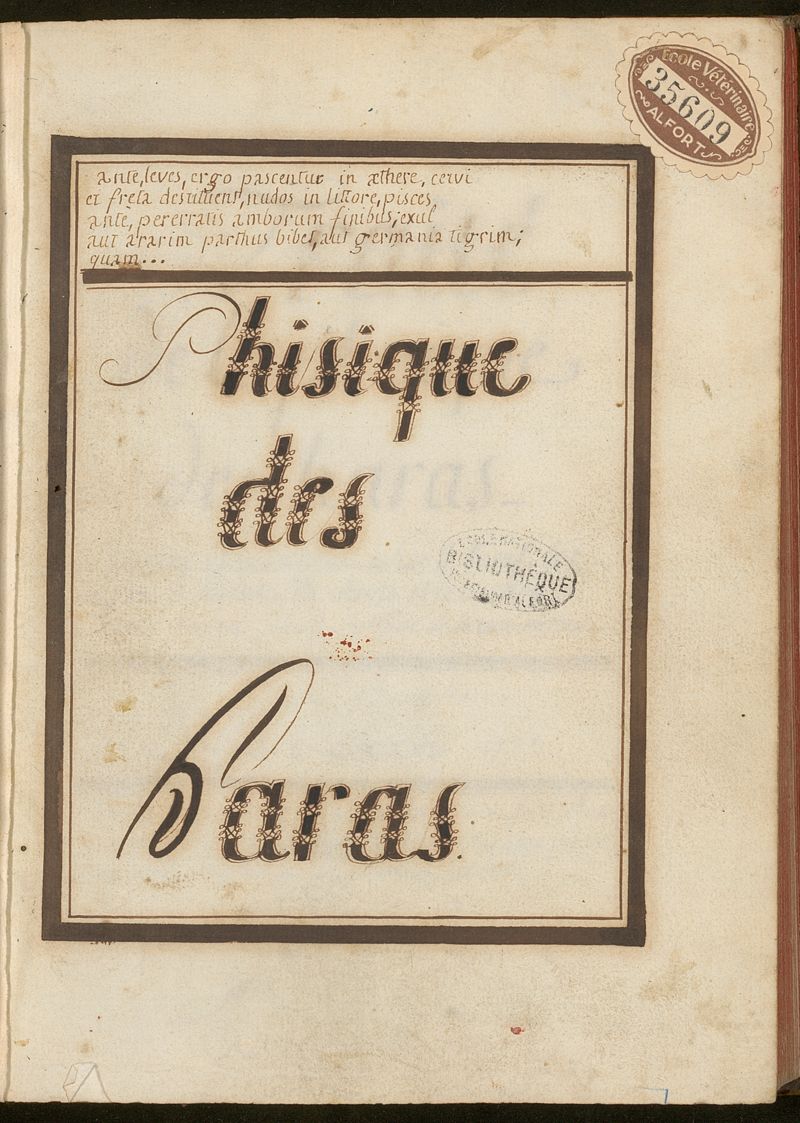 Ecole Vétérinaire
35609
ALFORT
ante, leves, ergo pascentur in æthere, cervi
et freta destituent, nudos in littore, pisces
ante, pererratis amborum finibus, exul
aut ararim parthus bibet, aut germania tigrim;
quam...
Phisique
des
ECOLE NATIONALE
BIBLIOTHÈQUE
D'ALFORT
Haras.